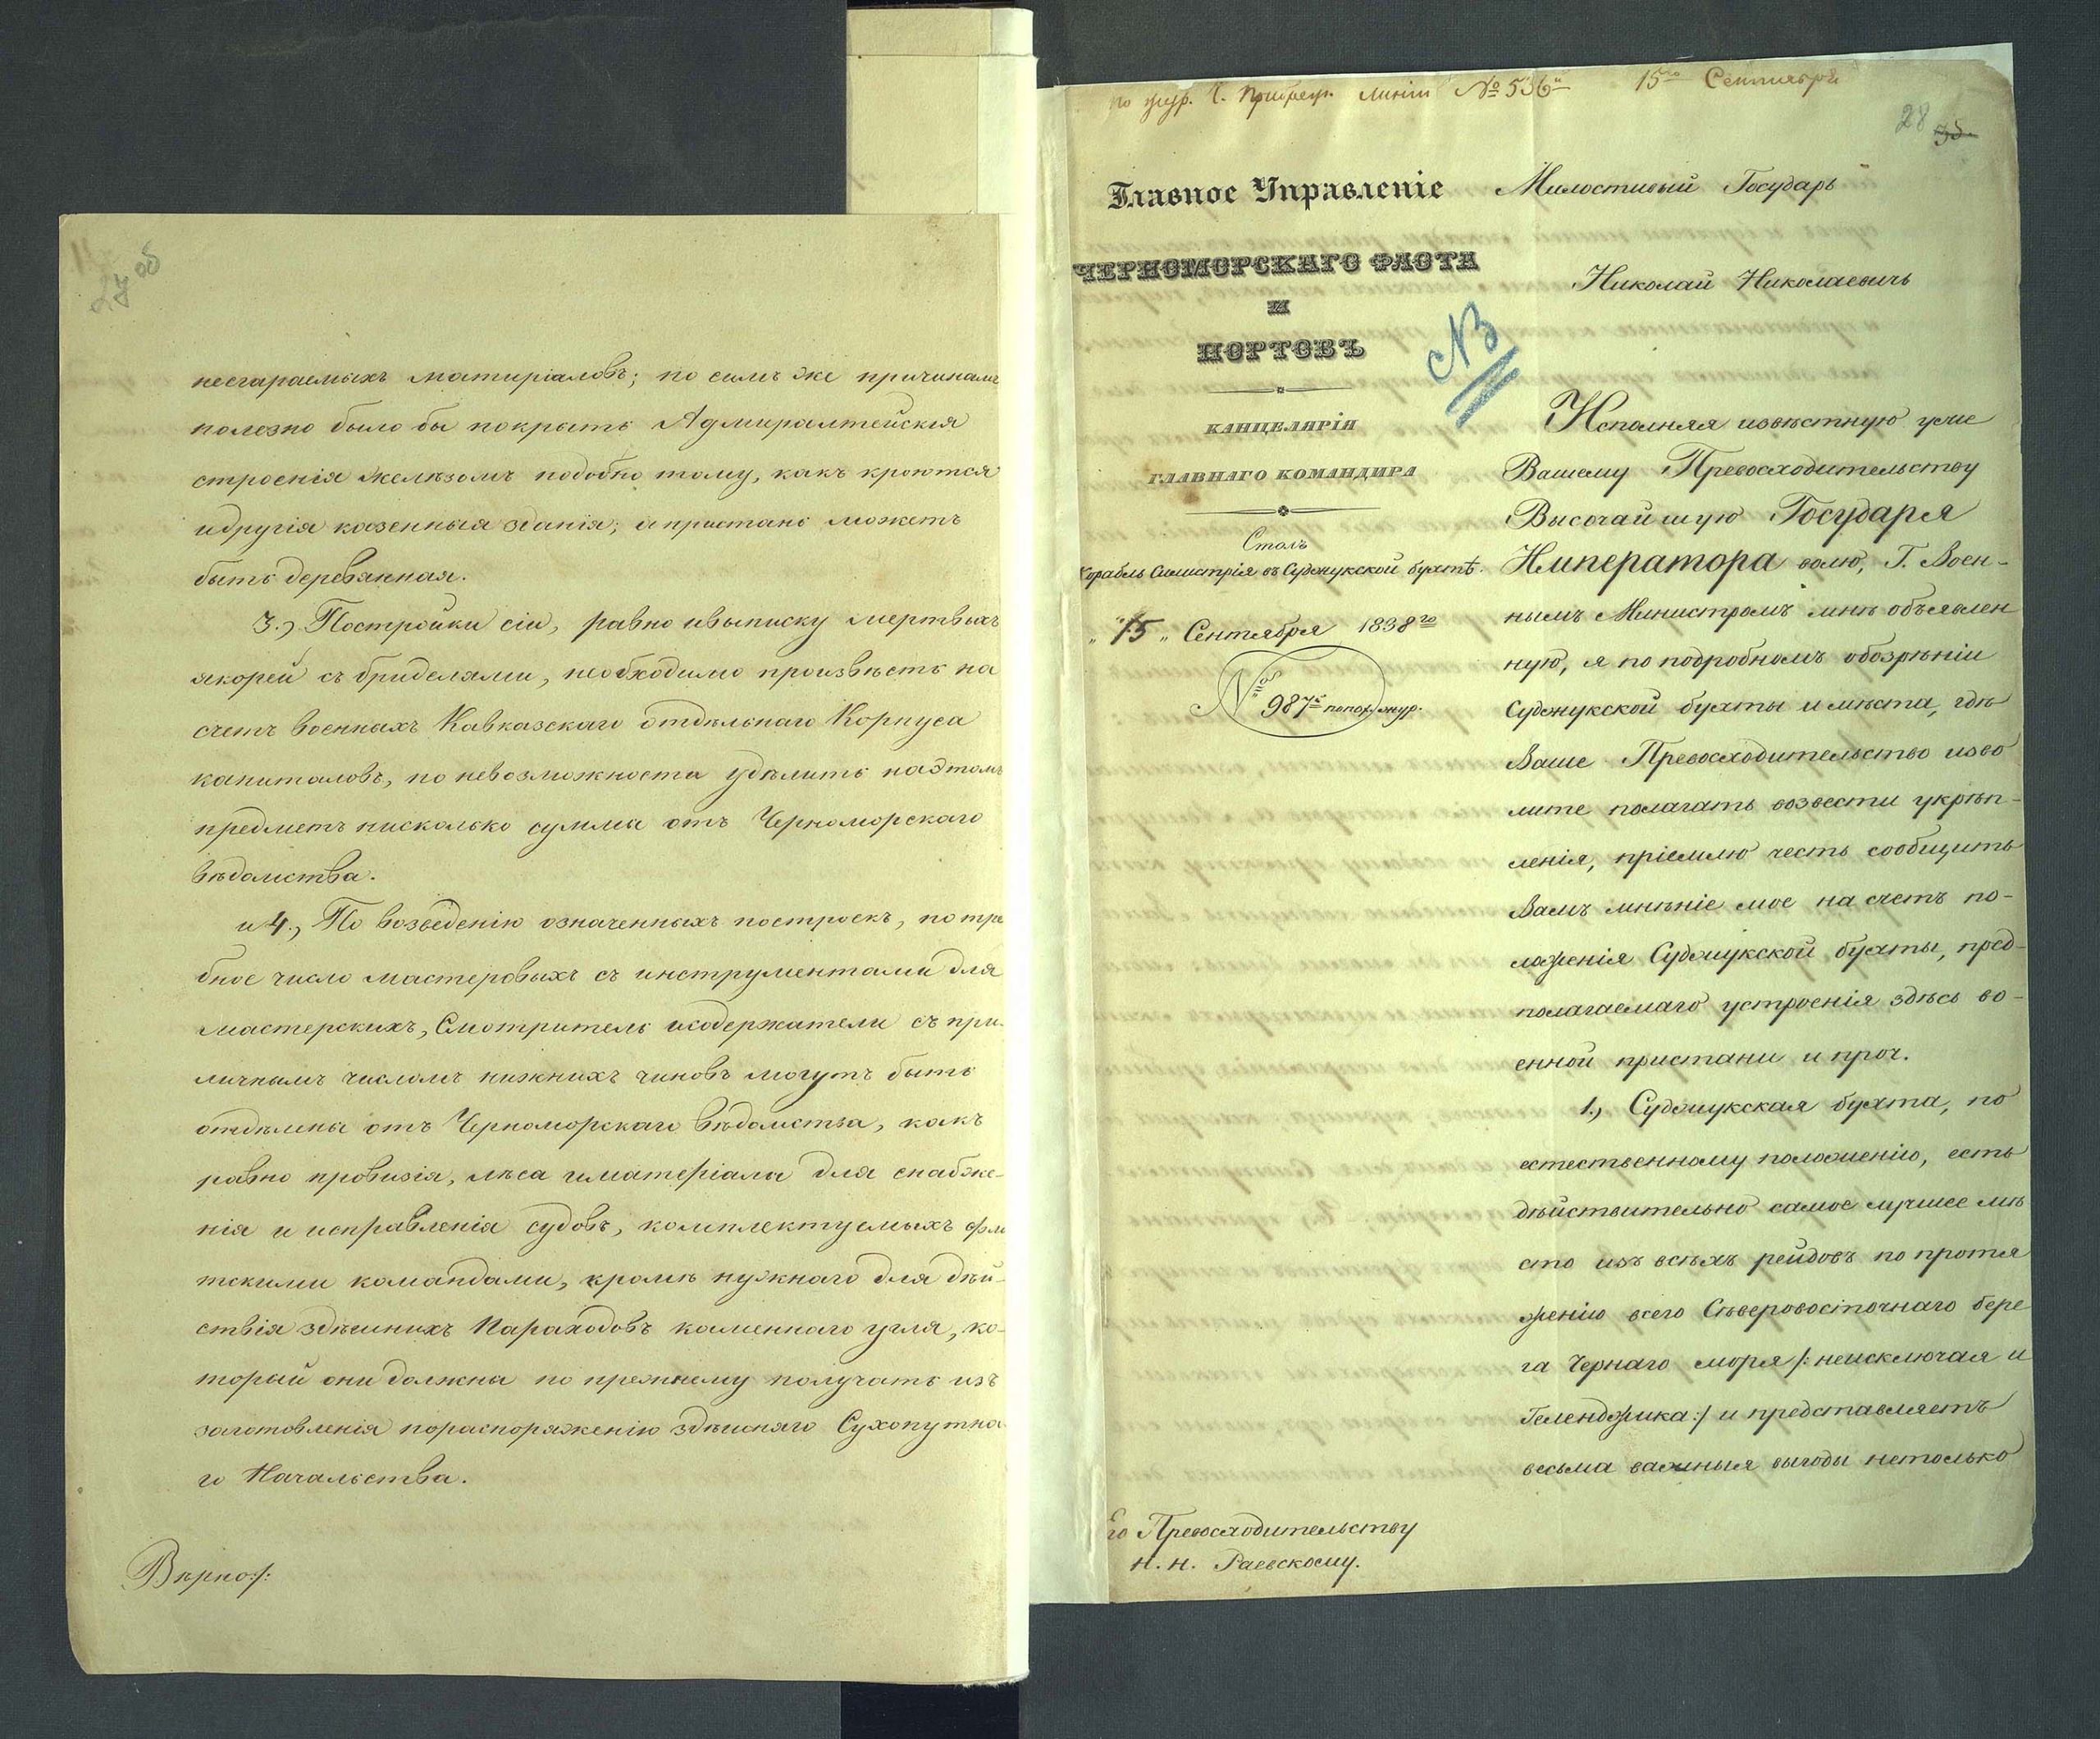 27 об
несгараемыхъ матиріаловъ; по симъ же причинамъ
полезно было бы покрыть Адмиралтейскія
строенія желѣзомъ подобно тому, какъ кроются
и другія казенныя зданія; а пристань можетъ
быть деревянная.
3.) Постройки сіи, равно и выписку мертвыхъ
якорей съ бриделями, необходимо произвѣсть на
счетъ военныхъ Кавказскаго отдѣльнаго Корпуса
капиталовъ, по невозможности удѣлить на этотъ
предметъ нисколько суммы отъ Черноморскаго
вѣдомства.
и 4.) По возведенію означенныхъ построекъ, потре
бное число мастеровыхъ съ инструментами для
мастерскихъ, Смотритель и содержатели съ при-
личнымъ числомъ нижнихъ чиновъ могутъ быть
отдѣлены отъ Черноморскаго вѣдомства, какъ
равно провизія, лѣса и матеріалы для снабже-
нія и исправленія судовъ, комплектуемыхъ фло
тскими командами, кромѣ нужнаго для дѣй-
ствія здѣшнихъ Пароходовъ каменнаго угля, ко-
торый они должны по прежнему получать изъ
заготовленія по распоряженію здѣшняго Сухопутна
го Начальства.
Вѣрно:/:
по жур. Ч. Прибреж. линіи № 536й 15го Сентября
28
Главное Управленіе
ЧЕРНОМОРСКАГО ФЛОТА
И
ПОРТОВЪ
КАНЦЕЛЯРІЯ
ГЛАВНАГО КОМАНДИРА
Столъ
Корабль Силистрія въ Суджукской бухтѣ.
„15„ Сентября 1838го
№ 987й по пох. жур.
NB
Милостивый Государь
Николай Николаевичъ
Исполняя извѣстную уже
Вашему Превосходительству
Высочайшую Государя
Императора волю, Г. Воен-
нымъ Министромъ мнѣ объявлен
ную, я по подробномъ обозрѣніи
Суджукской бухты и мѣста, гдѣ
Ваше Превосходительство изво
лите полагать возвести укрѣп-
ленія, пріемлю честь сообщить
Вамъ мнѣніе мое на счетъ по-
ложенія Суджукской бухты, пред-
полагаемаго устроенія здѣсь во-
енной пристани и проч.
1.) Суджукская бухта, по
естественному положенію, есть
дѣйствительно самое лучшее мѣ
сто изъ всѣхъ рейдовъ по протя
женію всего Сѣверовосточнаго бере
га Чернаго моря /:неисключая и
Геленджика:/ и представляетъ
весьма важныя выгоды нетолько
Его Превосходительству
Н. Н. Раевскому.